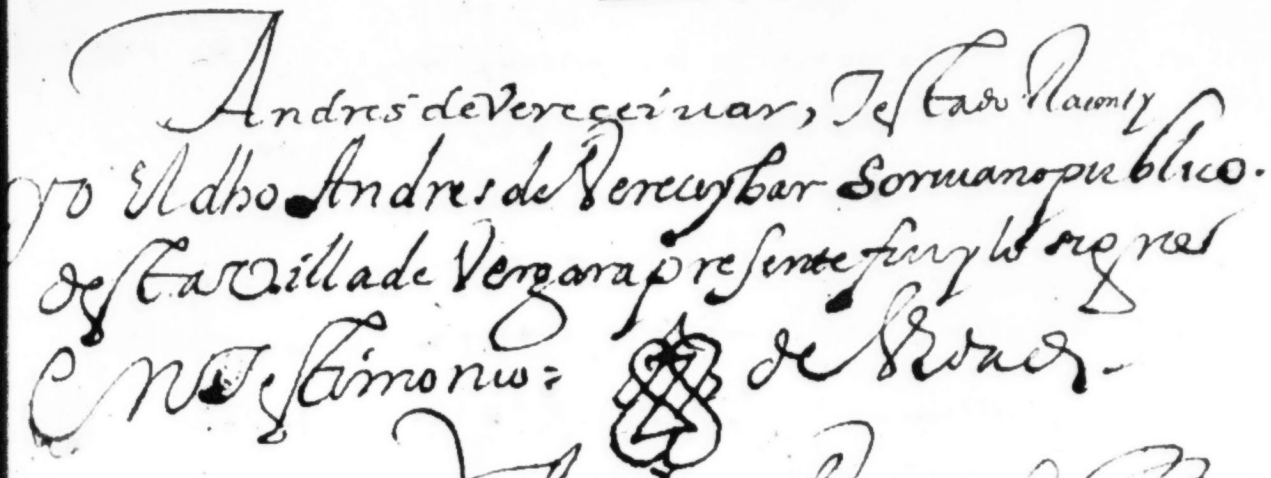 Andres de Vereçeiuar, Testado
yo El dho Andres de Verecuybar scriuano publico.
desta Villa de Vergara presente fuy y lo signe
En Testimonio = de Verdad.